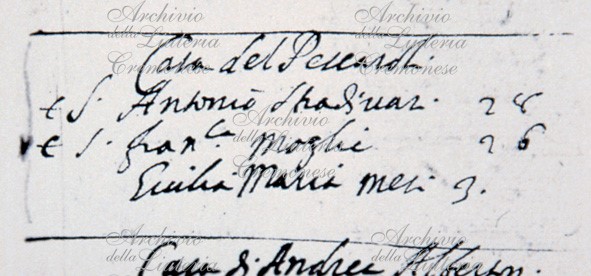 Archivio
della
Liuteria
Cremonese
Archivio
della
Liuteria
Cremonese
Casa del Pescaroli
c S. Antonio Stradivar. 28
c S. fran.ca Moglie 26
Giulia Maria mesi 3.
Archivio
della
Liuteria
Cremonese
Casa di Andrea
Archivio
della
Liuteria
Archivio
della
Liuteria